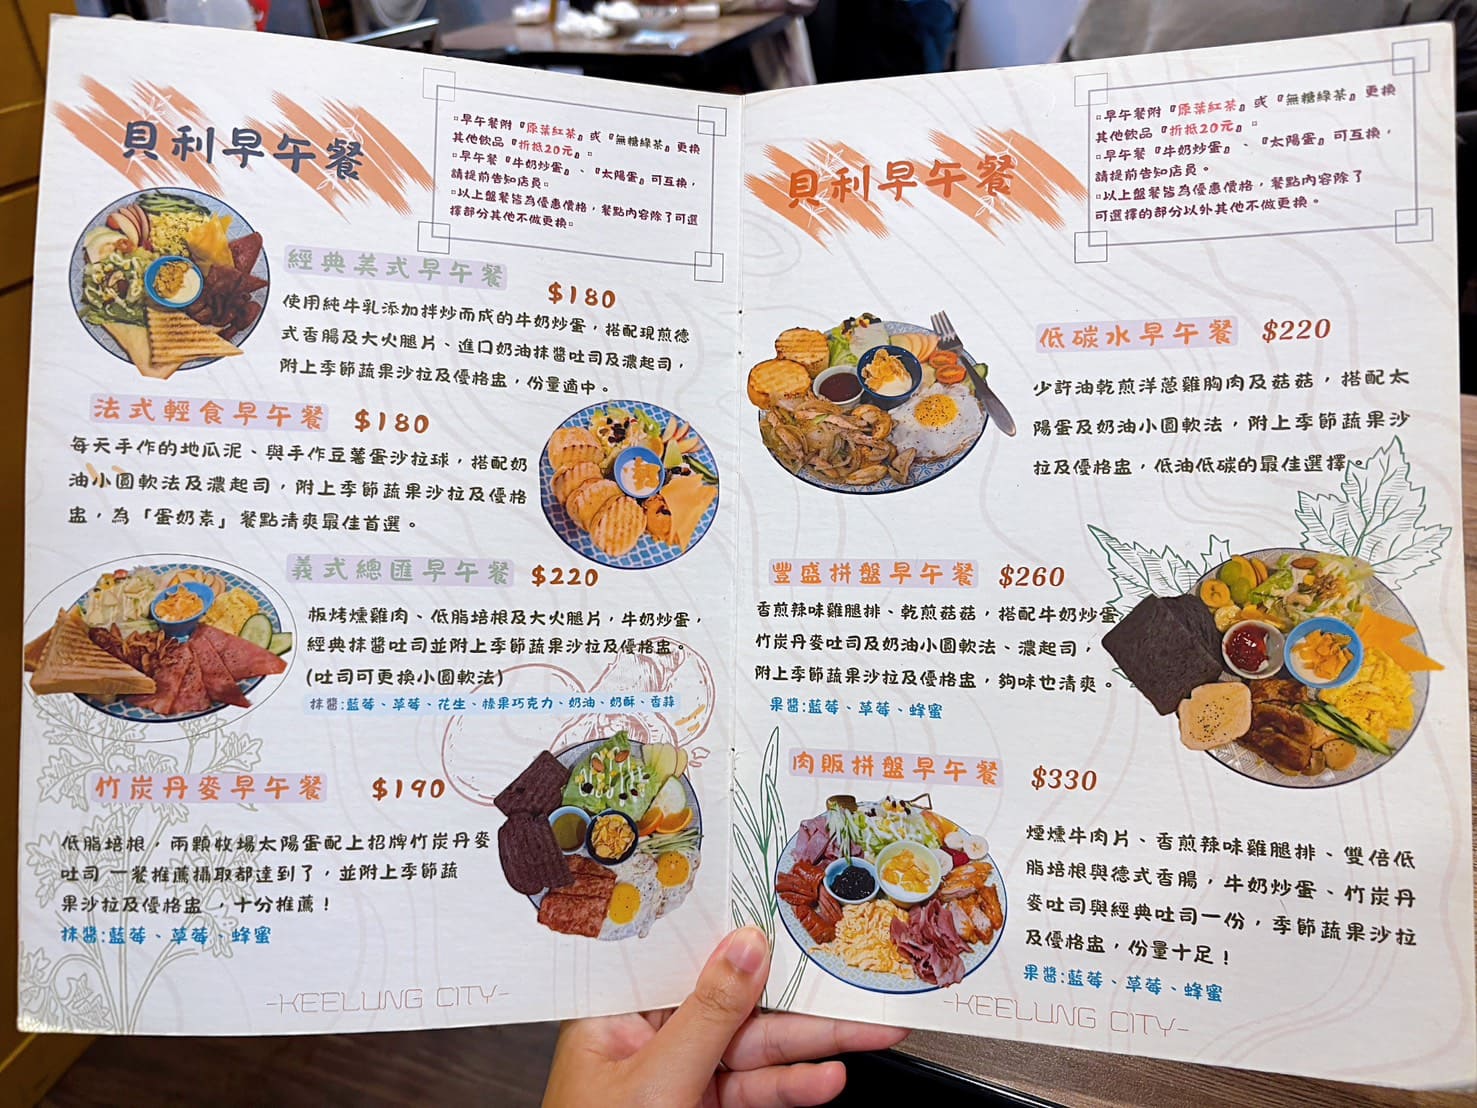 貝利早午餐
▫早午餐附『原葉紅茶』或『無糖綠茶』更換
其他飲品『折抵20元』。
▫早午餐『牛奶炒蛋』、『太陽蛋』可互換，
請提前告知店員▫
▫以上盤餐皆為優惠價格，餐點內容除了可選
擇部分其他不做更換▫
經典美式早午餐 $180
使用純牛乳添加拌炒而成的牛奶炒蛋，搭配現煎德
式香腸及大火腿片、進口奶油抹醬吐司及濃起司，
附上季節蔬果沙拉及優格盅，份量適中。
法式輕食早午餐 $180
每天手作的地瓜泥、與手作豆薯蛋沙拉球，搭配奶
油小圓軟法及濃起司，附上季節蔬果沙拉及優格
盅，為「蛋奶素」餐點清爽最佳首選。
義式總匯早午餐 $220
板烤燻雞肉、低脂培根及大火腿片，牛奶炒蛋，
經典抹醬吐司並附上季節蔬果沙拉及優格盅。
(吐司可更換小圓軟法)
抹醬:藍莓、草莓、花生、榛果巧克力、奶油、奶酥、香蒜
竹炭丹麥早午餐 $190
低脂培根，兩顆牧場太陽蛋配上招牌竹炭丹麥
吐司 一餐推薦攝取都達到了，並附上季節蔬
果沙拉及優格盅 ，十分推薦！
抹醬:藍莓、草莓、蜂蜜
-KEELUNG CITY-
貝利早午餐
▫早午餐附『原葉紅茶』或『無糖綠茶』更換
其他飲品『折抵20元』。
▫早午餐『牛奶炒蛋』、『太陽蛋』可互換，
請提前告知店員。
▫以上盤餐皆為優惠價格，餐點內容除了
可選擇的部分以外其他不做更換。
低碳水早午餐 $220
少許油乾煎洋蔥雞胸肉及菇菇，搭配太
陽蛋及奶油小圓軟法，附上季節蔬果沙
拉及優格盅，低油低碳的最佳選擇。
豐盛拼盤早午餐 $260
香煎辣味雞腿排、乾煎菇菇，搭配牛奶炒蛋
竹炭丹麥吐司及奶油小圓軟法、濃起司，
附上季節蔬果沙拉及優格盅，夠味也清爽。
果醬:藍莓、草莓、蜂蜜
肉販拼盤早午餐 $330
煙燻牛肉片、香煎辣味雞腿排、雙倍低
脂培根與德式香腸，牛奶炒蛋、竹炭丹
麥吐司與經典吐司一份，季節蔬果沙拉
及優格盅，份量十足！
果醬:藍莓、草莓、蜂蜜
-KEELUNG CITY-